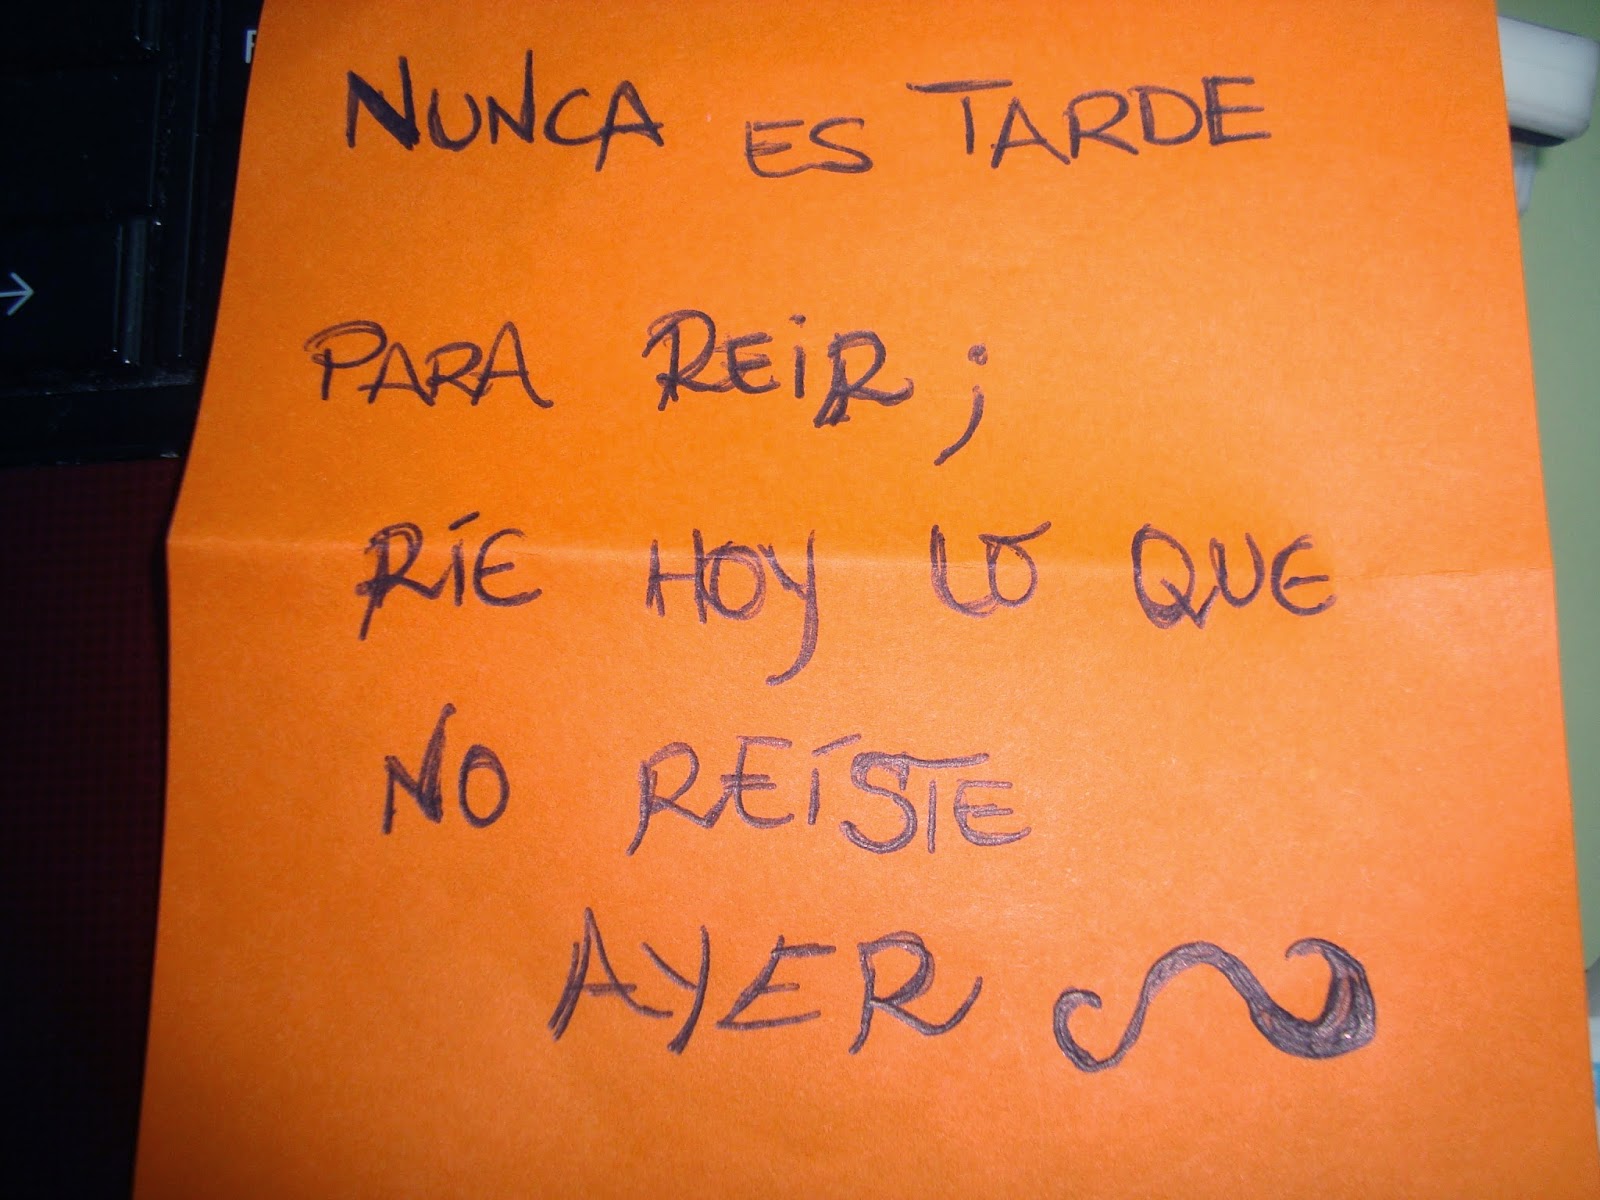 NUNCA ES TARDE
PARA REiR;
RÍE HOY LO QUE
NO REÍSTE
AYER